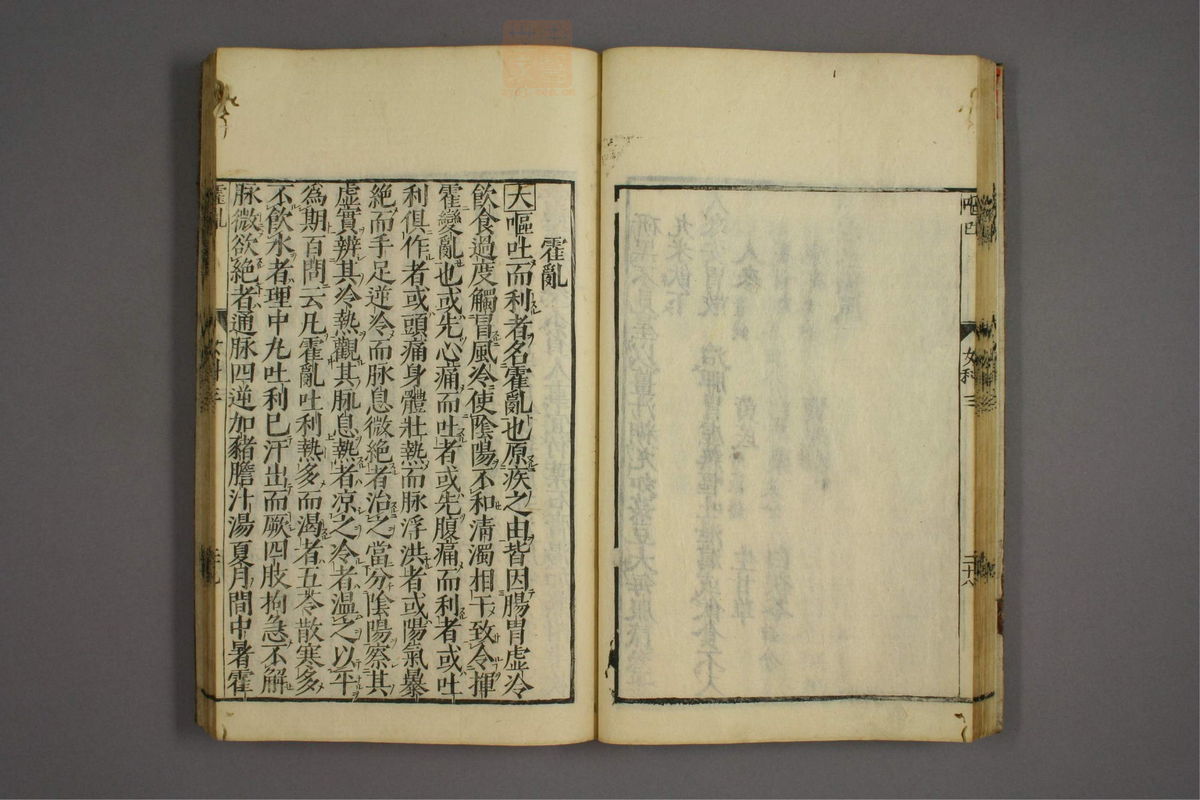 嘔吐
女科三
三十八
霍亂
大嘔吐而利者名霍亂也原疾之由皆因腸胃虛冷
飲食過度觸冒風冷使陰陽不和清濁相干致令揮
霍變亂也或先心痛而吐者或先腹痛而利者或吐
利俱作者或頭痛身體壯熱而脉浮洪者或陽氣暴
絕而手足逆冷而脉息微絕者治之當分陰陽察其
虛實辨其冷熱觀其脉息熱者凉之冷者温之以平
為期百問云凡霍亂吐利熱多而渴者五苓散寒多
不飲水者理中丸吐利已汗出而厥四肢拘急不解
脉微欲絕者通脉四逆加豬膽汁湯夏月間中暑霍
霍亂
女科三